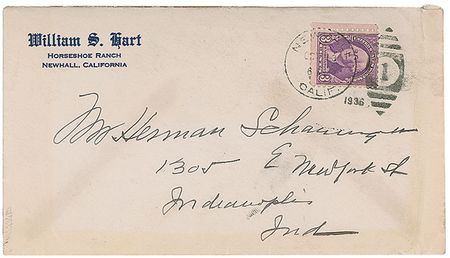 William S. Hart
HORSESHOE RANCH
NEWHALL, CALIFORNIA
CALIF.
1936
1
3 3
Mr Herman
1305 E New York St
Indianapolis
Ind